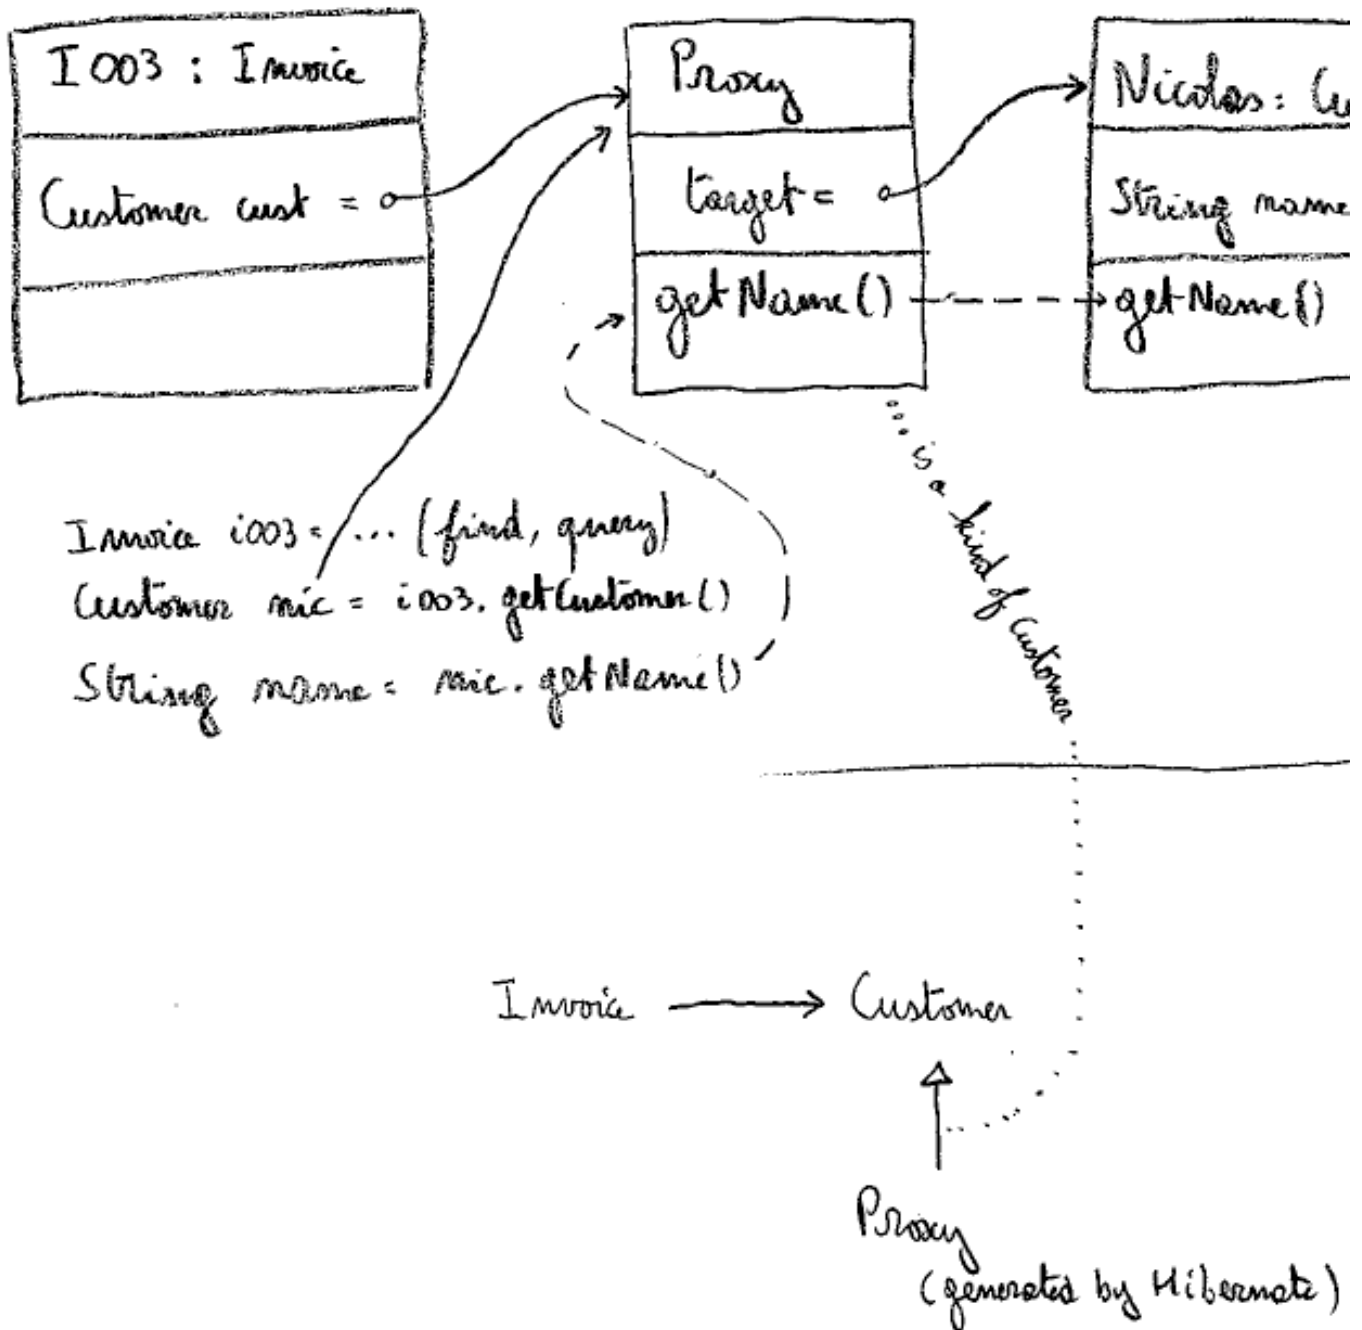 I003 : Invoice
Customer cust =
Proxy
target =
getName()
Nicolas: Cu
String name
getName()
Invoice i003 = ... (find, query)
Customer nic = i003.getCustomer()
String name = nic.getName()
... is a kind of Customer
Invoice Customer
Proxy
(generated by Hibernate)